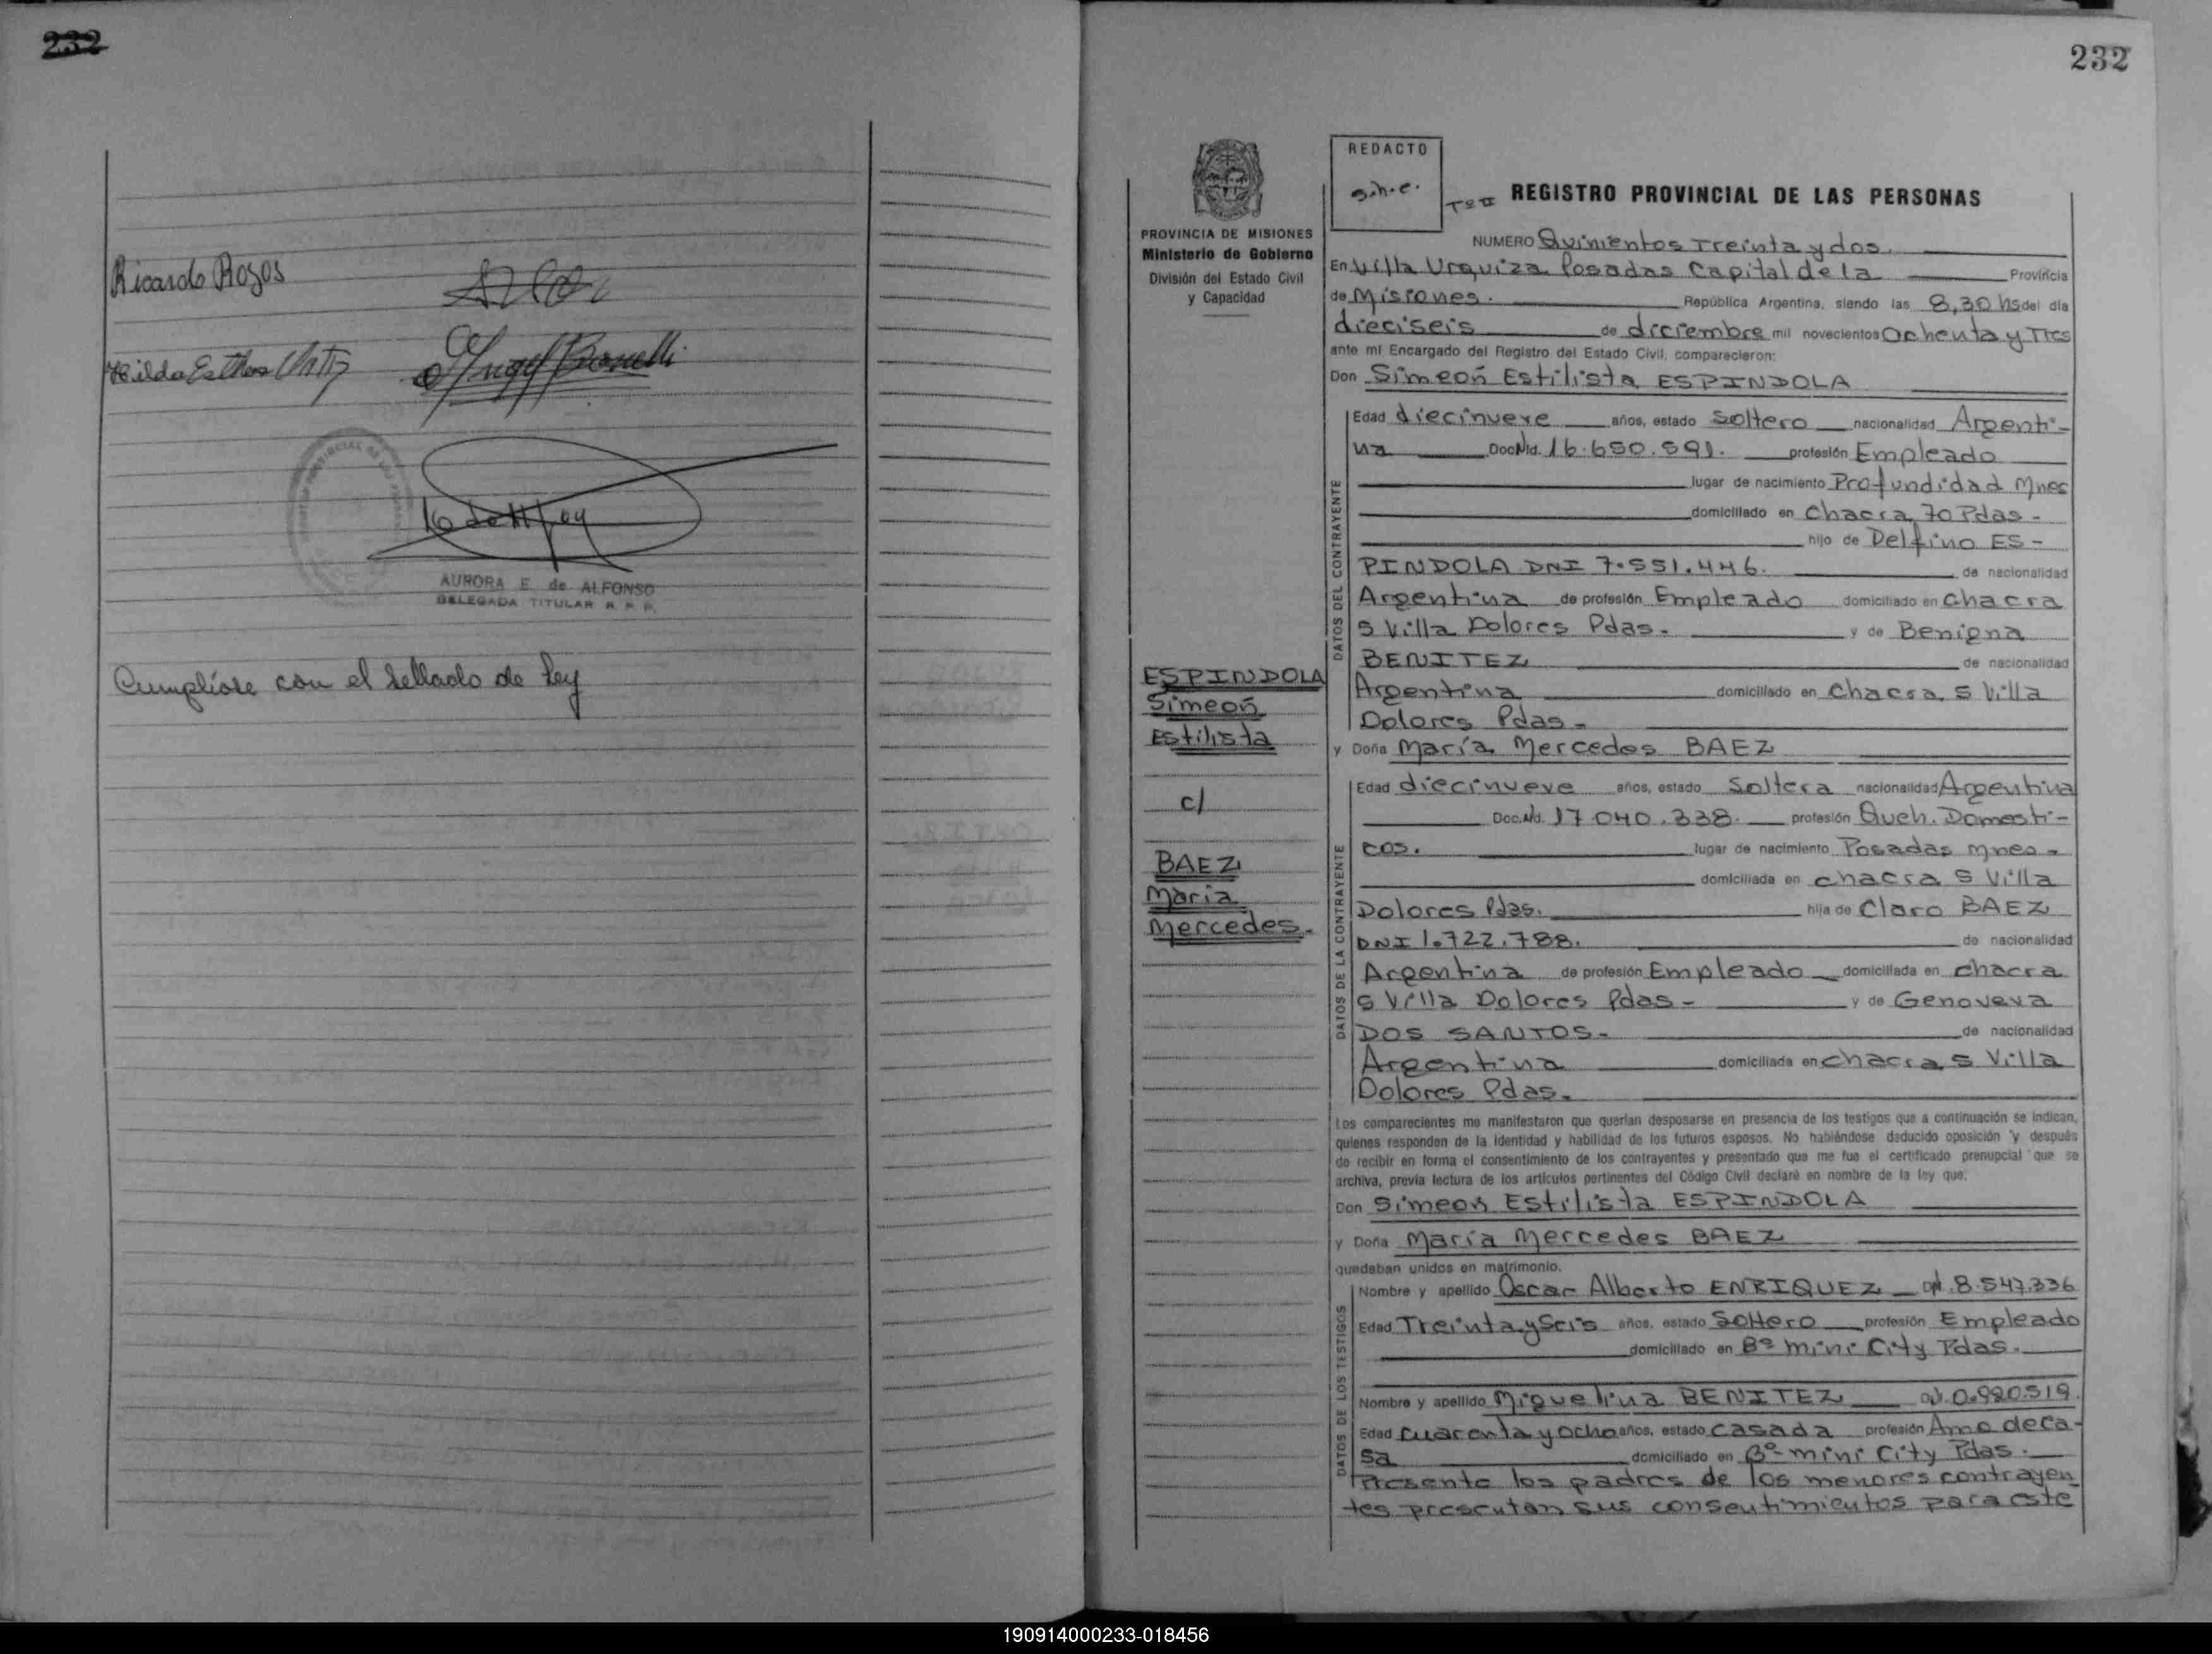 232
Ricardo Rozos
Hilda Esther Ortiz
AURORA E. de ALFONSO
DELEGADA TITULAR R. P. P.
Cumpliose con el sellado de ley
232
REDACTO
s.h.e.
Tº II REGISTRO PROVINCIAL DE LAS PERSONAS
PROVINCIA DE MISIONES
Ministerio de Gobierno
División del Estado Civil
y Capacidad
NUMERO Quinientos Treinta y dos.
En Villa Urquiza Posadas Capital de la Provincia
de Misiones. República Argentina, siendo las 8,30 hs del día
dieciseis de diciembre mil novecientos Ochenta y Tres
ante mí Encargado del Registro del Estado Civil, comparecieron:
Don Simeón Estilista ESPINDOLA
DATOS DEL CONTRAYENTE
Edad diecinueve años, estado Soltero nacionalidad Argenti-
na Doc Nid. 16.650.591. profesión Empleado
lugar de nacimiento Profundidad Mnes
domiciliado en Chacra 70 Pdas-
hijo de Delfino ES-
PINDOLA DNI 7.551.446. de nacionalidad
Argentina de profesión Empleado domiciliado en Chacra
5 Villa Dolores Pdas- y de Benigna
BENITEZ de nacionalidad
Argentina domiciliado en Chacra 5 Villa
Dolores Pdas-
ESPINDOLA
Simeón
Estilista
c/
BAEZ
Maria
Mercedes.
y Doña María Mercedes BAEZ
DATOS DE LA CONTRAYENTE
Edad diecinueve años, estado Soltera nacionalidad Argentina
Doc. Nd. 17.040.338. profesión Queh. Domesti-
cos. lugar de nacimiento Posadas Mnes-
domiciliada en chacra 5 Villa
Dolores Pdas. hija de Claro BAEZ
DNI 1.722.788. de nacionalidad
Argentina de profesión Empleado domiciliada en chacra
5 Villa Dolores Pdas- y de Genoveva
DOS SANTOS- de nacionalidad
Argentina domiciliada en chacra 5 Villa
Dolores Pdas.
Los comparecientes me manifestaron que querían desposarse en presencia de los testigos que a continuación se indican,
quienes responden de la identidad y habilidad de los futuros esposos. No habiéndose deducido oposición y después
de recibir en forma el consentimiento de los contrayentes y presentado que me fue el certificado prenupcial que se
archiva, previa lectura de los artículos pertinentes del Código Civil declaré en nombre de la ley que:
Don Simeon Estilista ESPINDOLA
y Doña María Mercedes BAEZ
quedaban unidos en matrimonio.
DATOS DE LOS TESTIGOS
Nombre y apellido Oscar Alberto ENRIQUEZ 8.547.336
Edad Treinta y Seis años, estado Soltero profesión Empleado
domiciliado en Bº mini City Pdas.
Nombre y apellido Miguelina BENITEZ 0.920.519.
Edad Cuarenta y ocho años, estado Casada profesión Ama de ca-
sa domiciliado en Bº mini City Pdas.
Presente los padres de los menores contrayen
tes presentan sus consentimientos para este
190914000233-018456